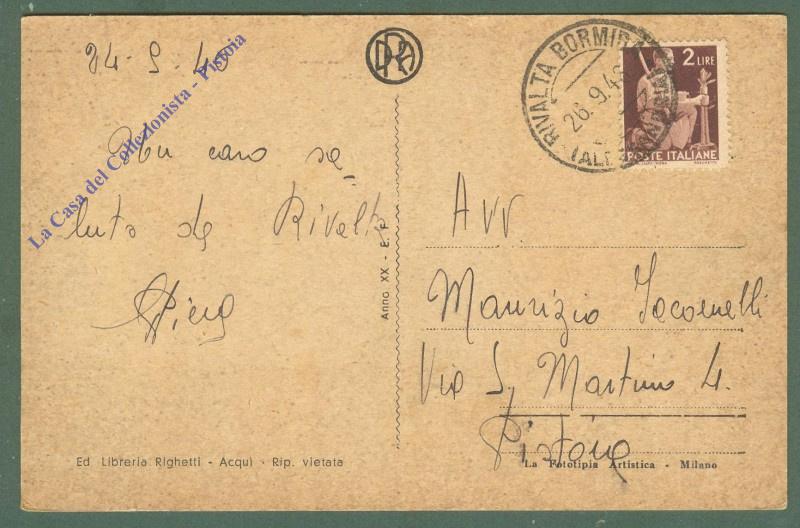 24-9-46
La Casa del Collezionista - Pistoia
Un caro sa-
luto da Rivalta
Piera
Anno XX - E. F.
Ed Libreria Righetti - Acqui - Rip. vietata
RIVALTA BORMIDA
26.9.46
(ALESSANDRIA)
2 LIRE
POSTE ITALIANE
Avv.
Maurizio Iacomelli
Via S. Martino 4.
Pistoia
La Fototipia Artistica - Milano